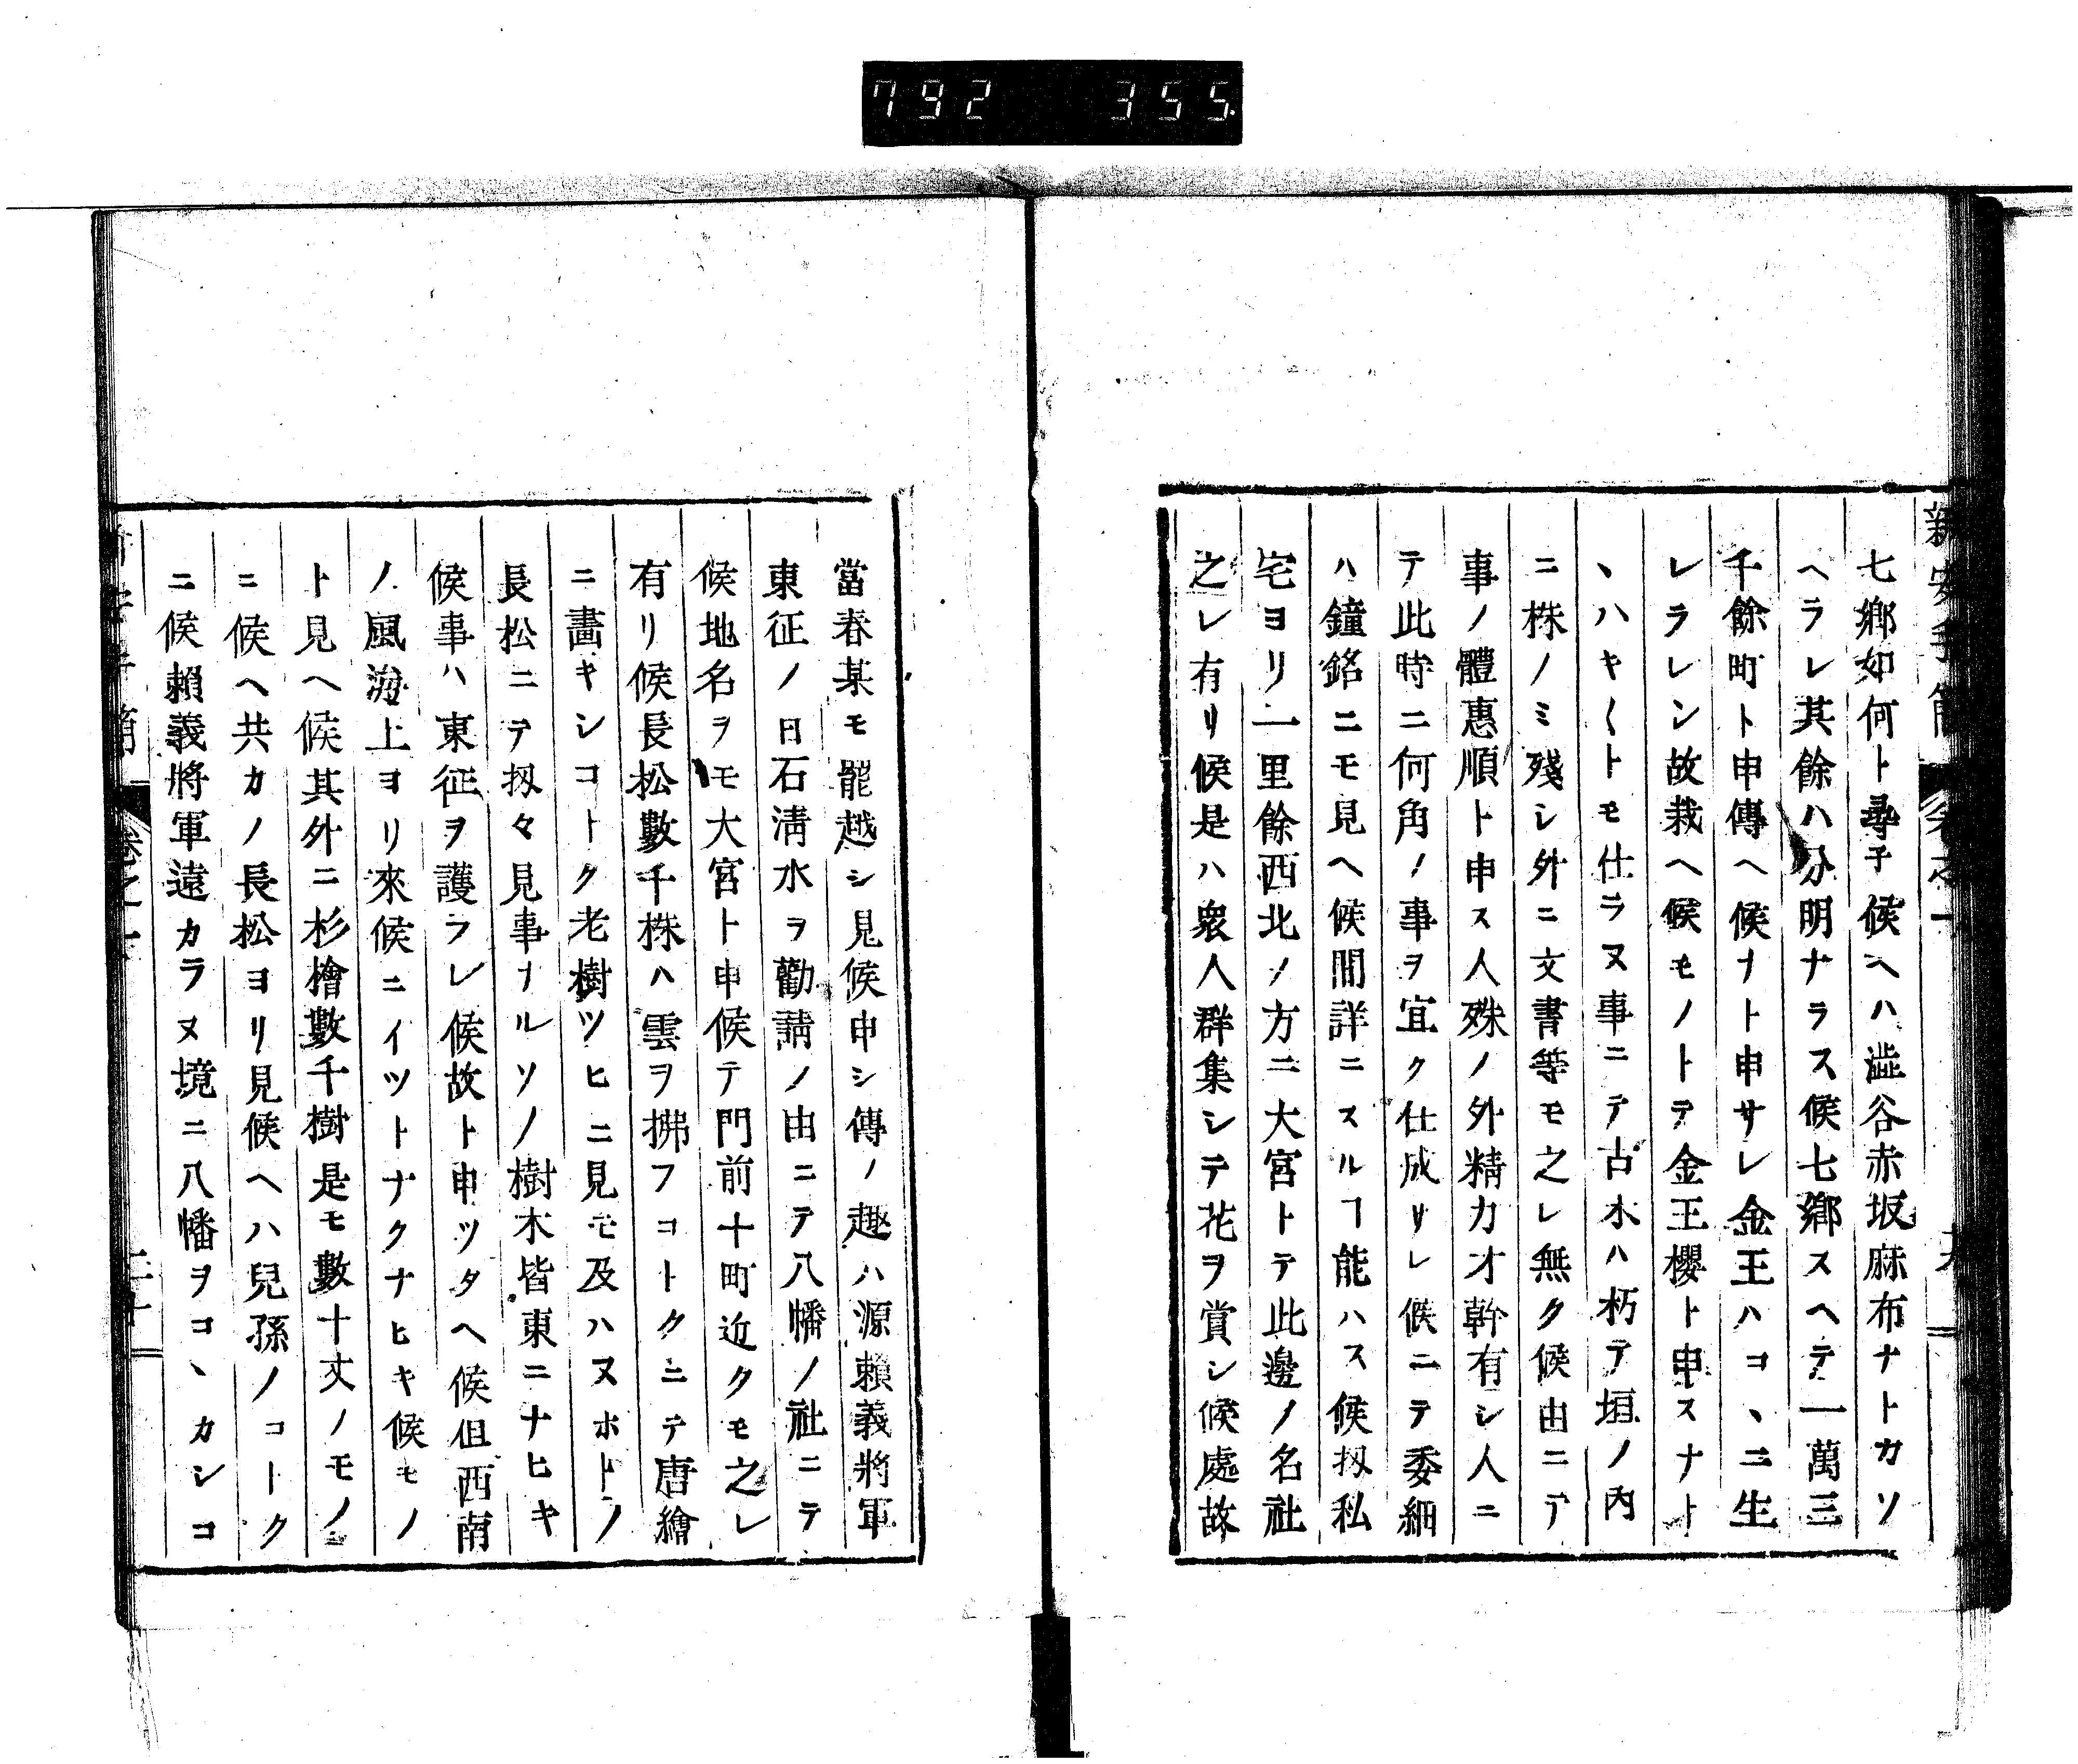 792 355
七鄉如何ト尋子候ヘハ澁谷赤坂麻布ナトカソ
ヘラレ其餘ハ分明ナラス候七鄉スヘテ一萬三
千餘町ト申傳ヘ候ナト申サレ金王ハコヽニ生
レラレシ故栽ヘ候モノトテ金王櫻ト申スナト
ヽハキ〱トモ仕ラヌ事ニテ古木ハ朽テ垣ノ内
ニ株ノミ殘シ外ニ文書等モ之レ無ク候由ニテ
事ノ體惠順ト申ス人殊ノ外精力才幹有シ人ニ
テ此時ニ何角ノ事ヲ宜ク仕成サレ候ニテ委細
ハ鐘銘ニモ見ヘ候間詳ニスルヿ能ハス候扨私
宅ヨリ一里餘西北ノ方ニ大宮トテ此邊ノ名社
之レ有リ候是ハ衆人群集シテ花ヲ賞シ候處故
當春某モ罷越シ見候申シ傳ノ趣ハ源賴義將軍
東征ノ日石淸水ヲ勸請ノ由ニテ八幡ノ社ニテ
候地名ヲモ大宮ト申候テ門前十町近クモ之レ
有リ候長松數千株ハ雲ヲ拂フコトクニテ唐繪
ニ畵キシコトク老樹ツヒニ見モ及ハヌホトノ
長松ニテ扨々見事ナルソノ樹木皆東ニナヒキ
候事ハ東征ヲ護ラレ候故ト申ツタヘ候但西南
ノ風海上ヨリ來候ニイツトナクナヒキ候モノ
ト見ヘ候其外ニ杉檜數千樹是モ數十丈ノモノ
ニ候ヘ共カノ長松ヨリ見候ヘハ兒孫ノコトク
ニ候賴義將軍遠カラヌ境ニ八幡ヲコヽカシコ
卷之一